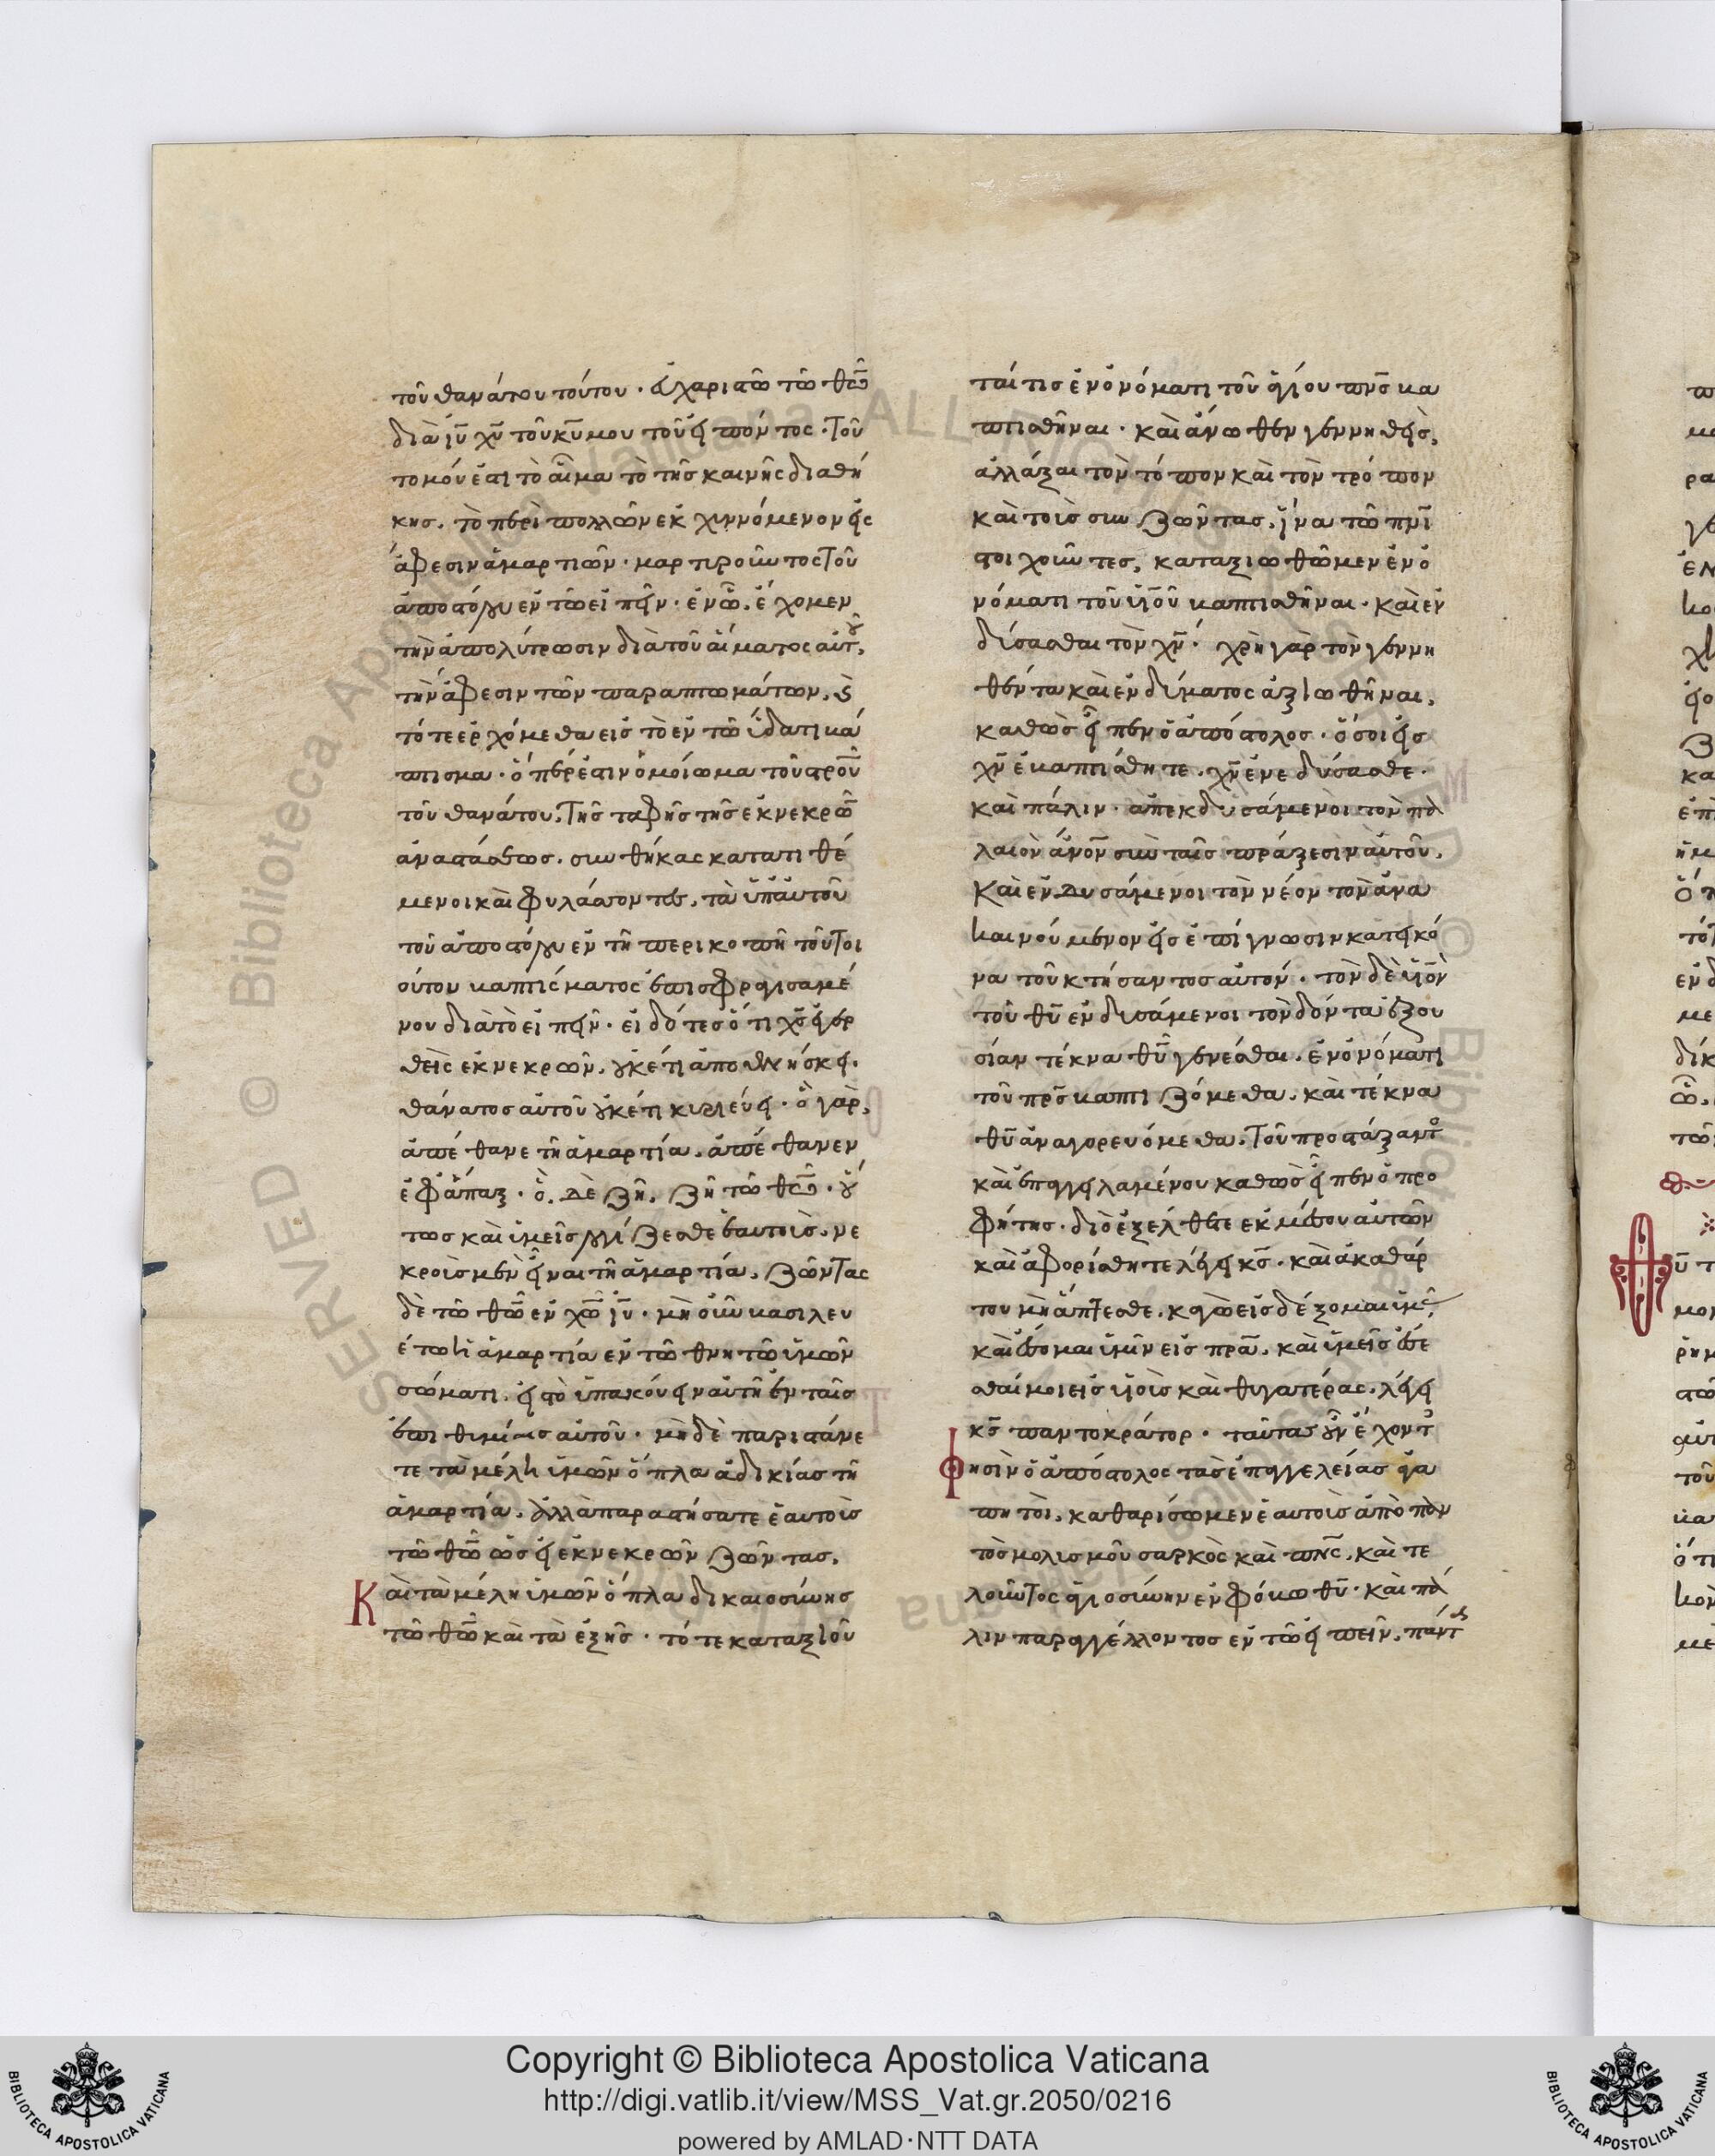 τοῦ θανάτου τούτου· εὐχαριστῶ τῶ θεῶ
διὰ ιυ χυ τοῦ κυ μου τοῦ εἰπόντος· Τοῦ
το μού ἐστι τὸ αἷμα τὸ τῆς καινῆς διαθή
κης. τὸ περὶ πολλῶν ἐκχυννόμενον εἰς
ἄφεσιν ἁμαρτιῶν· μαρτυροῦντος Τοῦ
ἀποστόλου ἐν τῶ εἰπεῖν· ἐν ὧ. ἔχομεν
τὴν ἀπολύτρωσιν διὰ τοῦ αἵματος αὐτοῦ,
τὴν ἄφεσιν τῶν παραπτωμάτων. ϗ
τότε ἐρχόμεθα εἰς τὸ ἐν τῶ ὕδατι βά
πτισμα· ὅπερ ἐστιν ὁμοίωμα τοῦ στροῦ
τοῦ θανάτου. Τῆς ταφῆς τῆς ἐκ νεκρῶ
ἀναστάσεως. συνθήκας κατατιθέ
μενοι καὶ φυλάσσοντες. τὰ ὑπ αὐτοῦ
τοῦ ἀποστόλου ἐν τῆ περικοπῆ τοῦ Τοι
ούτου βαπτίσματος ἐπισφραγισαμέ
νου διὰ τὸ εἰπεῖν· εἰδότες ὅτι χς ἐγερ
θεὶς ἐκ νεκρῶν. οὐκέτι ἀποθνήσκει.
θάνατος αὐτοῦ οὐκέτι κυριεύει· ὃ γὰρ,
ἀπέθανε τῆ ἁμαρτία. ἀπέθανεν
ἐφάπαξ· ὃ. δὲ ζῆ. ζῆ τῶ θεῶ· οὕ
τως καὶ ὑμεῖς λογίζεσθε ἑαυτοὺς. νε
κροὺς μὲν εἶναι τῆ ἁμαρτία. ζῶνΤας
δὲ τῶ θῶ ἐν χῶ ιυ· μὴ οὖν βασιλευ
έτω ἡ ἁμαρτία ἐν τῶ θνητῶ ὑμῶν
σώματι. εἰς τὸ ὑπακούειν αὐτῆ ἐν ταῖς
ἐπιθυμίαις αὐτοῦ· μὴ δὲ παριστάνε
τε τὰ μέλη ὑμῶν ὅπλα ἀδικίας τῆ
ἁμαρτία. ἀλλὰ παραστήσατε ἑαυτοὺς
τῶ θῶ ὡς ἐκ νεκρῶν ζῶντας.
Καὶ τὰ μέλη ὑμῶν ὅπλα δικαιοσύνης
τῶ θῶ καὶ τὰ ἑξῆς· τότε καταξιοῦ
ταί τις ἐν ὀνόματι τοῦ ἁγίου πνς βα
πτισθῆναι· καὶ ἄνωθεν γεννηθεὶς,
ἀλλάξαι τὸν τόπον καὶ τὸν τρόπον
καὶ τοὺς συνζῶντας. ἵνα τῶ πνι
στοιχοῦντες, καταξιωθῶμεν ἐν ὀ
νόματι τοῦ υἱοῦ βαπτισθῆναι· καὶ ἐν
δύσασθαι τὸν χν· χρὴ γὰρ τὸν γεννη
θέντα καὶ ἐνδύματος ἀξιωθῆναι,
καθὼς εἶπεν ὁ ἀπόστολος· ὅσοι εἰς
χν ἐβαπτίσθητε. χν ἐνεδύσασθε.
καὶ πάλιν· ἀπεκδυσάμενοι τὸν πα
λαιὸν ἄνον σὺν ταῖς πράξεσιν αὐτοῦ.
Καὶ ἐνδυσάμενοι τὸν νέον τὸν ἀνα
καινούμενον εἰς ἐπίγνωσιν κατ εἰκό
να τοῦ κτήσαντος αὐτόν· τὸν δὲ υἱὸν
τοῦ θυ ἐνδυσάμενοι τὸν δόντα ἐξου
σίαν τέκνα θυ γενέσθαι. ἐν ὀνόματι
τοῦ πρς βαπτιζόμεθα. καὶ τέκνα
θυ ἀναγορευόμεθα. Τοῦ προστάξαντος
καὶ ἐπαγγειλαμένου καθὼς εἶπεν ὁ προ
φήτης· διὸ ἐξέλθετε ἐκ μέσου αὐτῶν
καὶ ἀφορίσθητε λέγει κς· καὶ ἀκαθάρ
του μὴ ἅπΤεσθε. κἀγὼ εἰσδέξομαι ὑμᾶς
καὶ ἔσομαι ὑμῖν εἰς πρα. καὶ ὑμεῖς ἔσε
σθαί μοι εἰς υἱοὺς καὶ θυγατέρας. λέγει
κς παντοκράτορ· ταύτας οὖν ἔχοντες
Φησὶν ὁ ἀπόστολος τὰς ἐπαγγελείας ἀγα
πητοὶ. καθαρίσωμεν ἑαυτοὺς ἀπὸ παν
τὸς μολισμοῦ σαρκὸς καὶ πνς. καὶ τε
λοῦνΤος ἁγιοσύνην ἐν φόβω θυ· καὶ πά
λιν παραγγέλλοντος ἐν τῶ εἰπεῖν. πάντες
Copyright © Biblioteca Apostolica Vaticana
http://digi.vatlib.it/view/MSS_Vat.gr.2050/0216
powered by AMLAD·NTT DATA